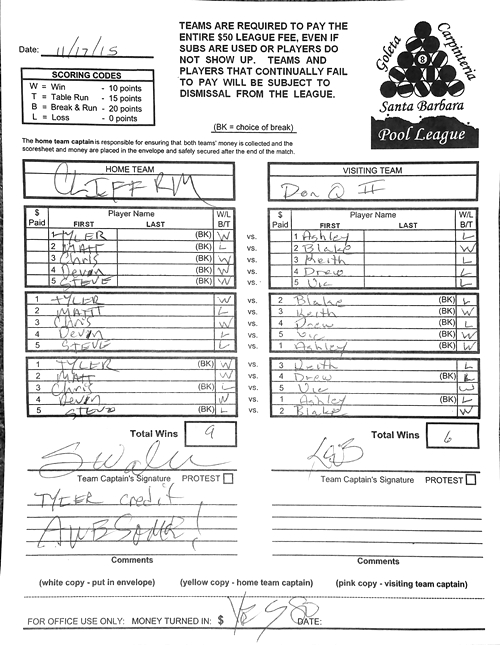 TEAMS ARE REQUIRED TO PAY THE
ENTIRE $50 LEAGUE FEE, EVEN IF
SUBS ARE USED OR PLAYERS DO
NOT SHOW UP. TEAMS AND
PLAYERS THAT CONTINUALLY FAIL
TO PAY WILL BE SUBJECT TO
DISMISSAL FROM THE LEAGUE.
Date: 11/17/15
SCORING CODES
W = Win - 10 points
T = Table Run - 15 points
B = Break & Run - 20 points
L = Loss - 0 points
(BK = choice of break)
Goleta
Carpinteria
8
Santa Barbara
Pool League
The home team captain is responsible for ensuring that both teams' money is collected and the
scoresheet and money are placed in the envelope and safely secured after the end of the match.
HOME TEAM VISITING TEAM
CLIFFRM Don Q II
$ Paid Player Name FIRST LAST W/L B/T $ Paid Player Name FIRST LAST W/L B/T
1 TYLER (BK) W vs. 1 Ashley L
2 MATT L vs. 2 Blake W
3 Chris (BK) W vs. 3 Keith L
4 Devon (BK) W vs. 4 Drew L
5 STEVE (BK) W vs. 5 Vic L
1 TYLER W vs. 2 Blake (BK) L
2 MATT L vs. 3 Keith (BK) W
3 Chris W vs. 4 Drew (BK) L
4 Devon L vs. 5 Vic (BK) W
5 STEVE L vs. 1 Ashley (BK) W
1 TYLER (BK) W vs. 3 Keith L
2 MATT W vs. 4 Drew (BK) L
3 Chris (BK) L vs. 5 Vic W
4 Devon W vs. 1 Ashley (BK) L
5 STEVE (BK) L vs. 2 Blake W
Total Wins 9 Total Wins 6
Team Captain's Signature PROTEST Team Captain's Signature PROTEST
TYLER credit
AWESOME!
Comments Comments
(white copy - put in envelope) (yellow copy - home team captain) (pink copy - visiting team captain)
FOR OFFICE USE ONLY: MONEY TURNED IN: $ DATE: